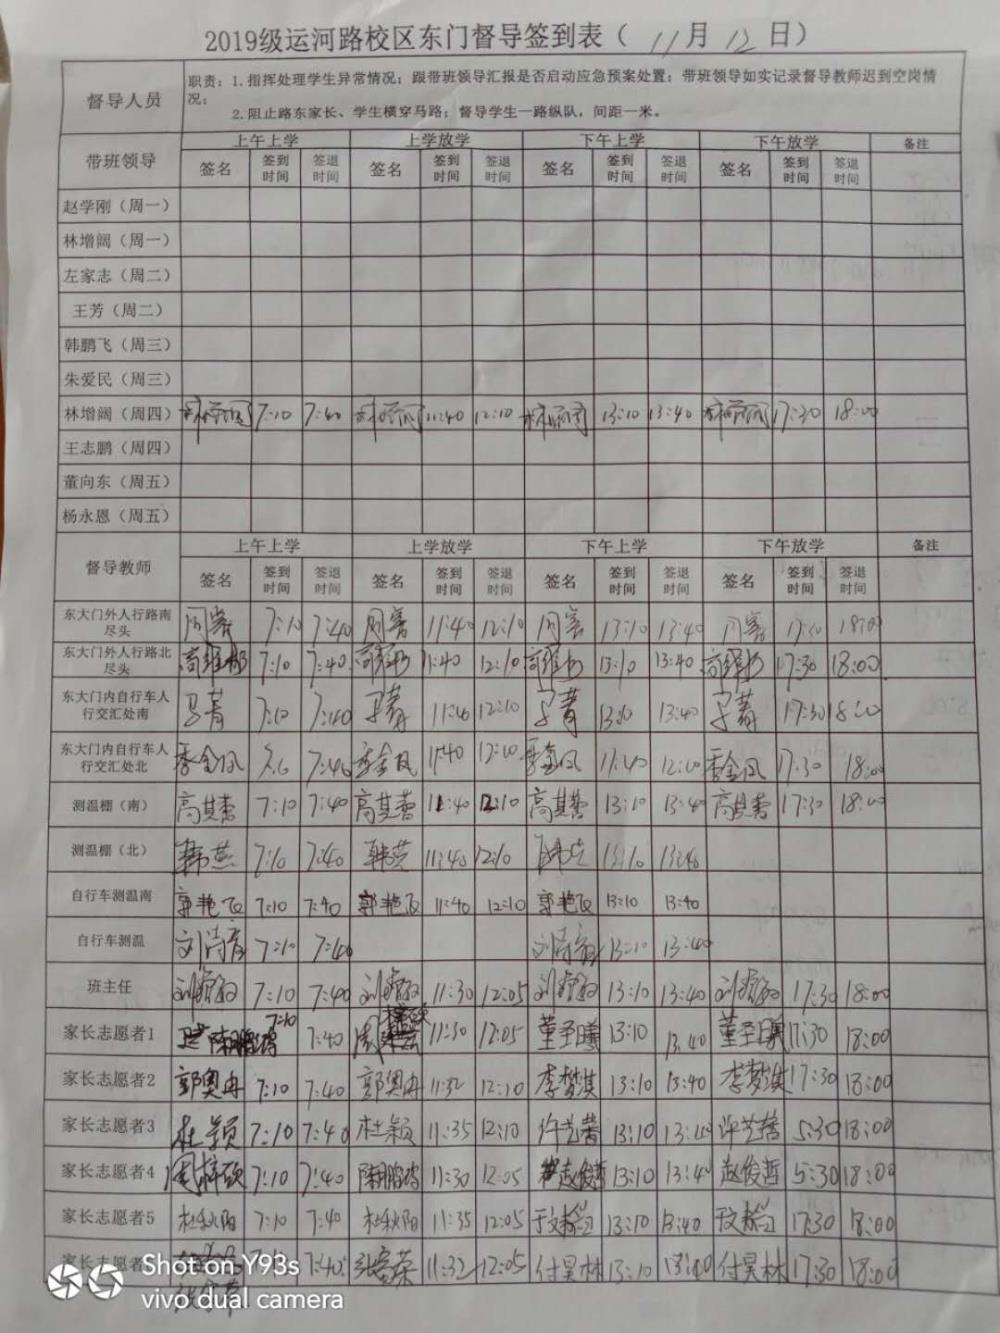 2019级运河路校区东门督导签到表（ 11月 12 日）
督导人员
职责：1. 指挥处理学生异常情况；跟带班领导汇报是否启动应急预案处置；带班领导如实记录督导教师迟到空岗情况；
2. 阻止路东家长、学生横穿马路；督导学生一路纵队，间距一米。
带班领导 上午上学 上学放学 下午上学 下午放学 备注
签名 签到时间 签退时间 签名 签到时间 签退时间 签名 签到时间 签退时间 签名 签到时间 签退时间
赵学刚（周一）
林增阔（周一）
左家志（周二）
王芳（周二）
韩鹏飞（周三）
朱爱民（周三）
林增阔（周四） 林增阔 7:10 7:40 林增阔 11:40 12:10 林增阔 13:10 13:40 林增阔 17:30 18:00
王志鹏（周四）
董向东（周五）
杨永恩（周五）
督导教师 上午上学 上学放学 下午上学 下午放学 备注
签名 签到时间 签退时间 签名 签到时间 签退时间 签名 签到时间 签退时间 签名 签到时间 签退时间
东大门外人行路南尽头 7:10 7:40 11:40 12:10 13:10 13:40 18:00
东大门外人行路北尽头 7:10 7:40 11:40 12:10 13:10 13:40 17:30 18:00
东大门内自行车人行交汇处南 7:10 7:40 11:40 12:10 13:10 13:40 17:30 18:00
东大门内自行车人行交汇处北 季金凤 7:40 季金凤 11:40 12:10 季金凤 季金凤 17:30 18:00
测温棚（南） 高其蕾 7:10 7:40 高其蕾 11:40 12:10 高其蕾 13:10 13:40 高其蕾 17:30 18:00
测温棚（北） 韩燕 7:10 7:40 韩燕 11:40 12:10 韩燕 13:10 13:40
自行车测温南 郭艳飞 7:10 7:40 郭艳飞 11:40 12:10 郭艳飞 13:10 13:40
自行车测温 7:10 7:40 13:10 13:40
班主任 7:10 7:40 11:30 12:05 13:10 13:40 17:30 18:00
家长志愿者1 陈鹏鸿 7:10 7:40 11:30 12:05 董圣曦 13:10 13:40 董圣曦 17:30 18:00
家长志愿者2 郭奥冉 7:10 7:40 郭奥冉 11:32 12:10 李梦淇 13:10 13:40 李梦淇 17:30 18:00
家长志愿者3 杜颖 7:10 7:40 杜颖 11:35 12:10 许艺蕾 13:10 13:40 许艺蕾 5:30 18:00
家长志愿者4 周梓硕 7:10 7:40 陈鹏鸿 11:30 12:05 赵俊哲 13:10 13:40 赵俊哲 5:30 18:00
家长志愿者5 杜秋阳 7:10 7:40 杜秋阳 11:35 12:05 13:10 13:40 17:30 18:00
家长志愿者 7:40 11:32 12:05 付昊林 13:10 13:40 付昊林 17:30 18:00
Shot on Y93s
vivo dual camera